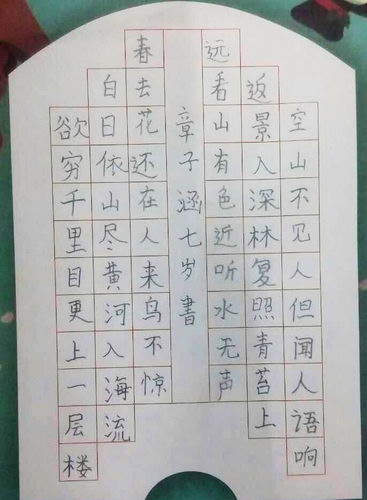 空山不见人但闻人语响
返景入深林复照青苔上
远看山有色近听水无声
章子涵七岁书
春去花还在人来鸟不惊
白日依山尽黄河入海流
欲穷千里目更上一层楼